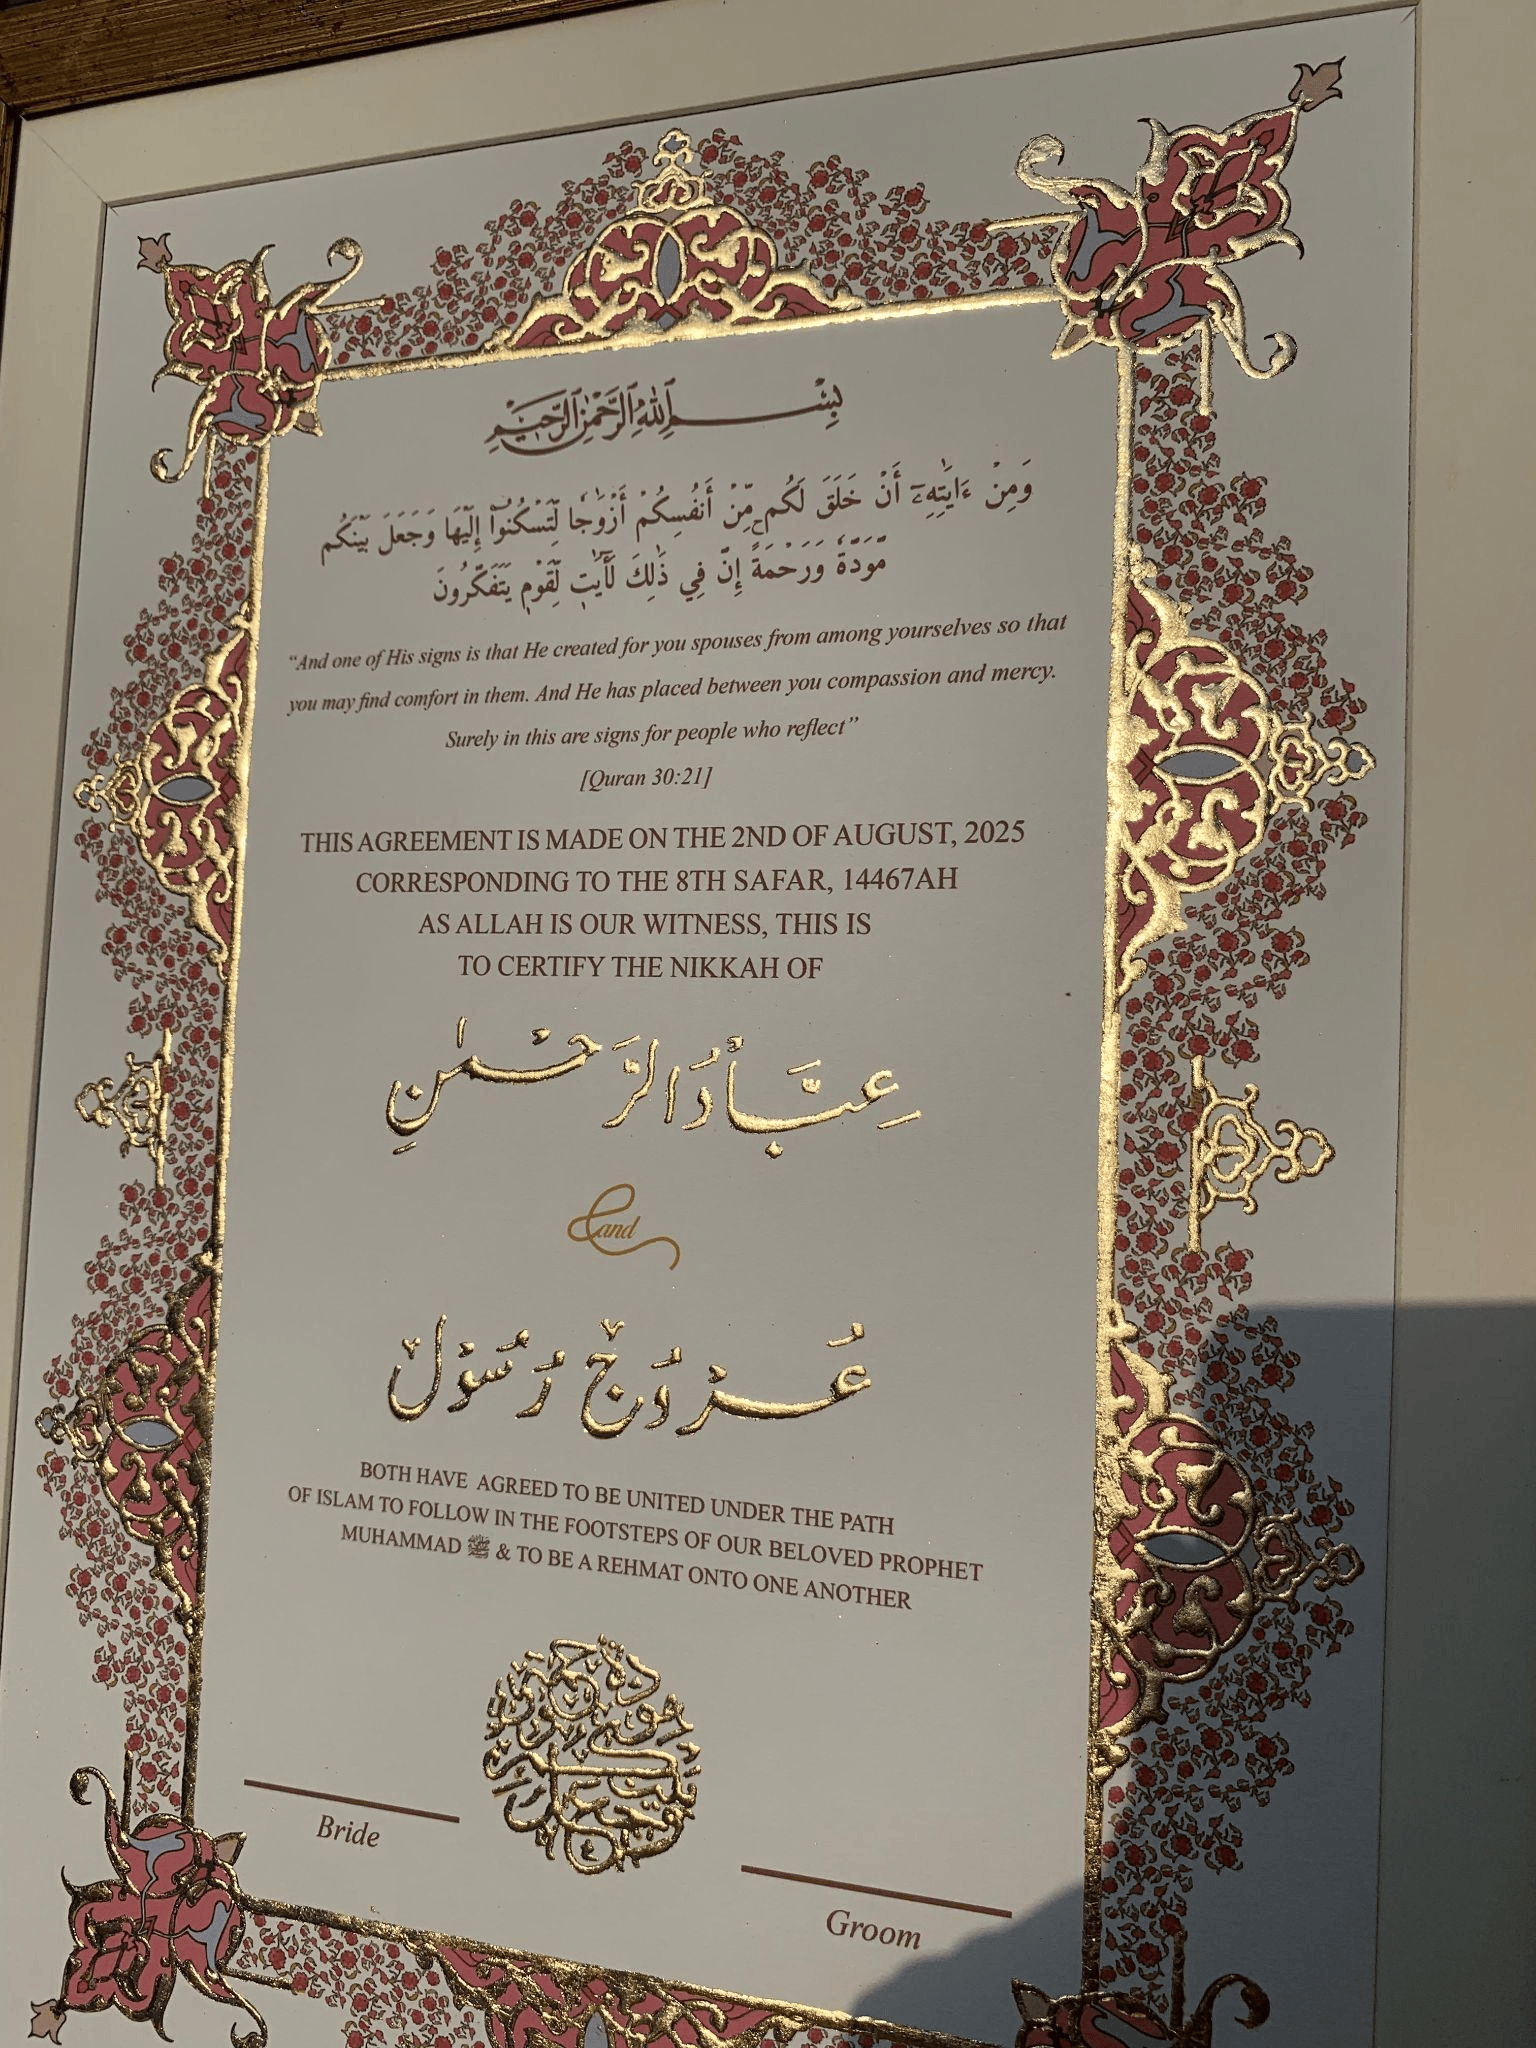 بِسْمِ ٱللَّهِ ٱلرَّحْمَٰنِ ٱلرَّحِيمِ
وَمِنْ ءَايَٰتِهِۦٓ أَنْ خَلَقَ لَكُم مِّنْ أَنفُسِكُمْ أَزْوَٰجًا لِّتَسْكُنُوٓا۟ إِلَيْهَا وَجَعَلَ بَيْنَكُم
مَّوَدَّةً وَرَحْمَةً إِنَّ فِي ذَٰلِكَ لَـَٔايَٰتٍ لِّقَوْمٍ يَتَفَكَّرُونَ
“And one of His signs is that He created for you spouses from among yourselves so that
you may find comfort in them. And He has placed between you compassion and mercy.
Surely in this are signs for people who reflect”
[Quran 30:21]
THIS AGREEMENT IS MADE ON THE 2ND OF AUGUST, 2025
CORRESPONDING TO THE 8TH SAFAR, 14467AH
AS ALLAH IS OUR WITNESS, THIS IS
TO CERTIFY THE NIKKAH OF
عِبَّادُ الرَّحْمٰنِ
and
عُرُوج رَسُول
BOTH HAVE AGREED TO BE UNITED UNDER THE PATH
OF ISLAM TO FOLLOW IN THE FOOTSTEPS OF OUR BELOVED PROPHET
MUHAMMAD ﷺ & TO BE A REHMAT ONTO ONE ANOTHER
وجعل بينكم مودة ورحمة
Bride
Groom